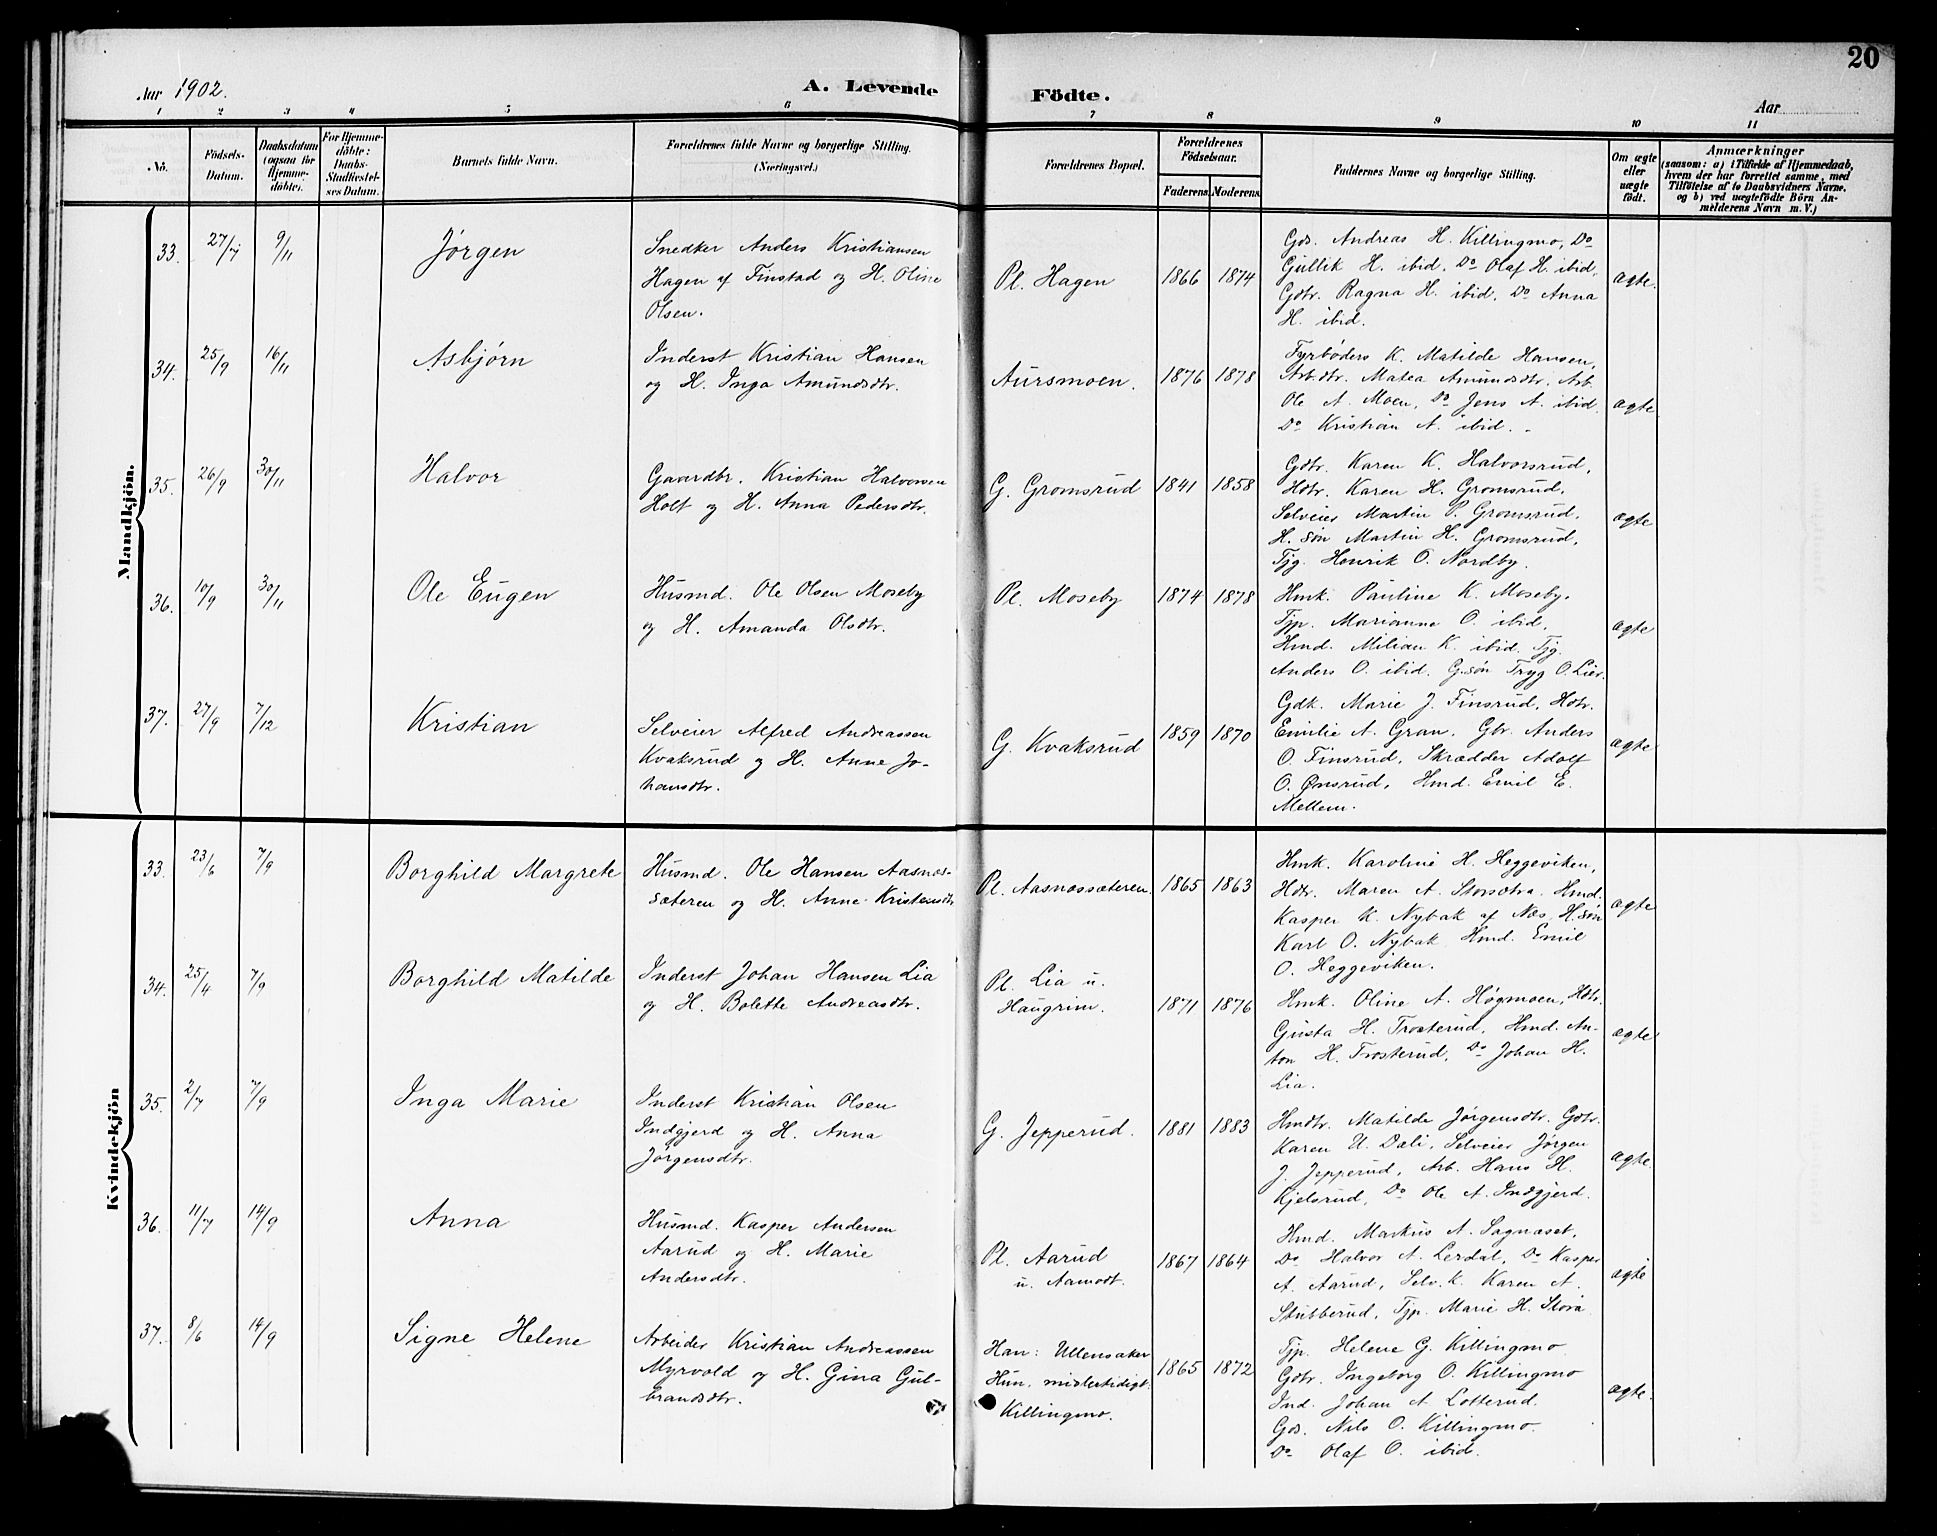 20
Aar 1902.
A. Levende
Födte.
Aar
1 2 3 4 5 6 7 8 9 10 11
No.
Födsels-
Datum.
Daabsdatum
(ogsaa for
Hjemme-
döbte).
For Hjemme-
döbte:
Daabs-
Stadfæstel-
ses Datum.
Barnets fulde Navn.
Forældrenes fulde Navne og borgerlige Stilling.
(Næringsvei.)
Forældrenes Bopæl.
Forældrenes
Födselsaar.
Faderens. Moderens.
Faddernes Navne og borgerlige Stilling.
Om ægte
eller
uægte
födt.
Anmærkninger
(saasom: a) i Tilfælde af Hjemmedaab,
hvem der har forrettet samme, med
Tilföielse af to Daabsvidners Navne.
og b) ved uægtefödte Börn An-
melderens Navn m. V.)
Mandkjön.
33. 27/7 9/11 Jørgen
Snedker Anders Kristiansen
Hagen af Finstad og H. Oline
Olsen.
Pl. Hagen 1866 1874
Gds. Andreas H. Killingmo, Do
Gullik H. ibid. Do Olaf H. ibid,
Gdtr. Ragna H. ibid. Do Anna
H. ibid.
ægte.
34. 25/9 16/11 Asbjørn
Inderst Kristian Hansen
og H. Inga Amundsdtr.
Aursmoen. 1876 1878
Fyrbøders K. Matilde Hansen,
Arb.dtr. Matea Amundsdtr. Arb.
Ole A. Moen, Do Jens A. ibid.
Do Kristian A. ibid.
ægte
35. 26/9 30/11 Halvor
Gaardbr. Kristian Halvorsen
Holt og H. Anna Pedersdtr.
G. Gromsrud 1841 1858
Gdtr. Karen K. Halvorsrud,
Hdtr. Karen H. Gromsrud.
Selveier Martin P. Gromsrud.
H. søn Martin H. Gromsrud,
Tjg. Henrik O. Nordby.
ægte
36. 10/9 30/11 Ole Eugen
Husmd. Ole Olsen Moseby
og H. Amanda Olsdtr.
Pl. Moseby 1874 1878
Hmk. Pauline K. Moseby.
Tjp. Marianne O. ibid.
Hmd. Milian K. ibid. Tjg.
Anders O. ibid. G.søn Tryg O. Lier.
ægte
37. 27/9 7/12 Kristian
Selveier Alfred Andreassen
Kvaksrud og H. Anne Jo-
hansdtr.
G. Kvaksrud 1859 1870
Gdk. Marie J. Finsrud, Hdtr.
Emilie A. Gran. Gbr. Anders
O. Finsrud, Skrædder Adolf
O. Ønsrud, Hmd. Emil E.
Mellem.
ægte
Kvindekjön
33. 23/6 7/9 Borghild Margrete
Husmd. Ole Hansen Aasnæs-
sæteren og H. Anne Kristensdtr.
Pl. Aasnæssæteren. 1865 1863
Hmk. Karoline H. Heggeviken,
Hdtr. Maren A. Storsætra. Hmd.
Kasper K. Nybak af Næs, H. søn
Karl O. Nybak. Hmd. Emil
O. Heggeviken.
ægte
34. 25/4 7/9 Borghild Matilde
Inderst Johan Hansen Lia
og H. Bolette Andreasdtr.
Pl. Lia u.
Haugrim. 1871 1876
Hmk. Oline A. Høgmoen, Hdtr.
Gusta H. Trosterud, Hmd. An-
ton H. Trosterud, Do Johan H.
Lia.
ægte
35. 2/7 7/9 Inga Marie
Inderst Kristian Olsen
Indgjerd og H. Anna
Jørgensdtr.
G. Jepperud. 1881 1883
Hmdtr. Matilde Jørgensdtr. Gdtr.
Karen U. Dæli, Selveier Jørgen
J. Jepperud, Arb. Hans H.
Kjelsrud, Do Ole A. Indgjerd.
ægte.
36. 11/7 14/9 Anna
Husmd. Kasper Andersen
Aarud og H. Marie
Andersdtr.
Pl. Aarud
u. Aamodt. 1867 1864
Hmd. Markus A. Sagnæset.
Do Halvor A. Lerdal, Do Kasper
A. Aarud, Selv.k. Karen A.
Stubberud, Tjp. Marie H. Stora
ægte
37. 8/6 14/9 Signe Helene
Arbeider Kristian Andreassen
Myrvold og H. Gina Gul-
brandsdtr.
Han: Ullensaker
Hun, midlertidigt.
Killingmo. 1865 1872
Tjp. Helene G. Killingmo
Gdtr. Ingeborg O. Killingmo
Ind. Johan A. Lotterud.
Gds. Nils O. Killingmo.
Do Olaf O. ibid.
ægte.